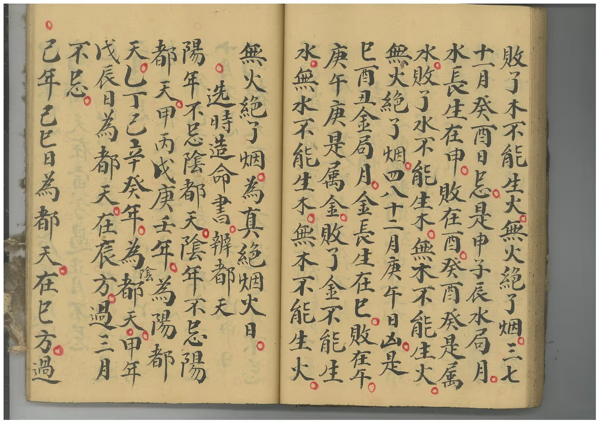 敗了木不能生火無火絕了烟三七
十一月癸酉日忌是申子辰水局月
水長生在申敗在酉癸酉癸是属
水敗了水不能生木無木不能生火
無火絕了烟四八十二月庚午日凶是
巳酉丑金局月金長生在巳敗在午
庚午庚是属金敗了金不能生
水無水不能生木無木不能生火
無火絕了烟為真絕烟火日
选時造命書辦都天
陽年不忌陰都天陰年不忌陽
都天甲丙戊庚壬年為陽都
天乙丁己辛癸年為陰都天甲年
戊辰日為都天在辰方過三月
不忌
己年己巳日為都天在巳方過